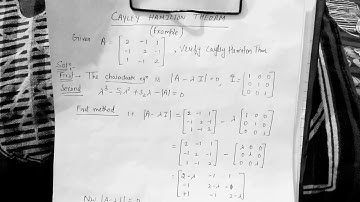 CAYLEY HAMILTON THEOREM
(Example)
Given A = [2 -1 1; -1 2 -1; 1 -1 2], Verify Cayley Hamilton Thm
Soln
First → The characteristic eqn is |A-λI|=0, I = [1 0 0; 0 1 0; 0 0 1]
Second λ³ - S₁λ² + S₂λ - |A| = 0
First method 1) |A-λI| = [2 -1 1; -1 2 -1; 1 -1 2] - λ [1 0 0; 0 1 0; 0 0 1]
= [2 -1 1; -1 2 -1; 1 -1 2] - [λ 0 0; 0 λ 0; 0 0 λ]
= [2-λ -1 1; -1 2-λ -1; +1 -1 2-λ]
Now |A-λI| = 0